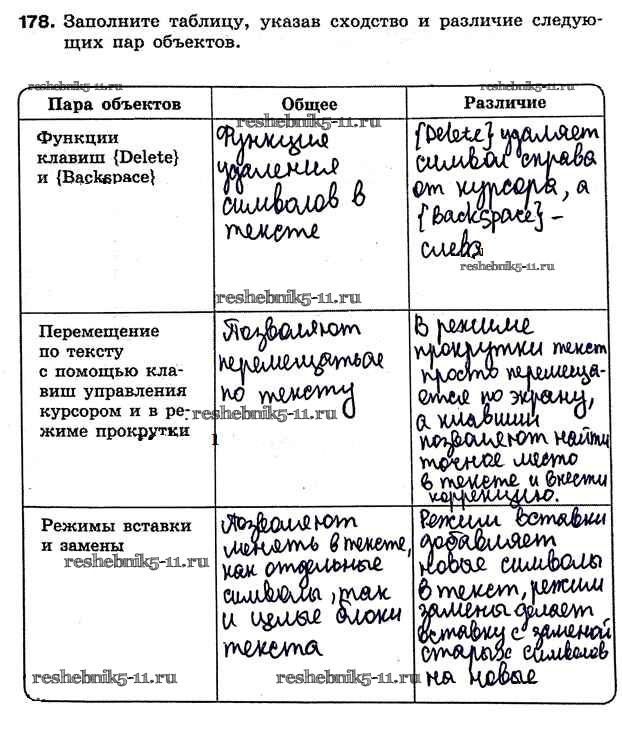 178. Заполните таблицу, указав сходство и различие следую-
щих пар объектов.
reshebnik5-11.ru
reshebnik5-11.ru
Пара объектов
Общее
Различие
reshebnik5-11.ru
Функции
клавиш {Delete}
и {Backspace}
Функция
удаления
символов в
тексте
{Delete} удаляет
символ справа
от курсора, а
{Backspace} –
слева
reshebnik5-11.ru
reshebnik5-11.ru
Перемещение
по тексту
с помощью кла-
виш управления
курсором и в ре-
жиме прокрутки
Позволяют
перемещаться
по тексту
reshebnik5-11.ru
1
В режиме
прокрутки текст
просто перемеща-
ется по экрану,
а клавиши
позволяют найти
точное место
в тексте и внести
коррекцию.
Режимы вставки
и замены
reshebnik5-11.ru
Позволяют
менять в тексте,
как отдельные
символы, так
и целые блоки
текста
Режим вставки
добавляет
новые символы
в текст, режим
замены делает
вставку с заменой
старых символов
на новые
reshebnik5-11.ru
reshebnik5-11.ru
reshebnik5-11.ru